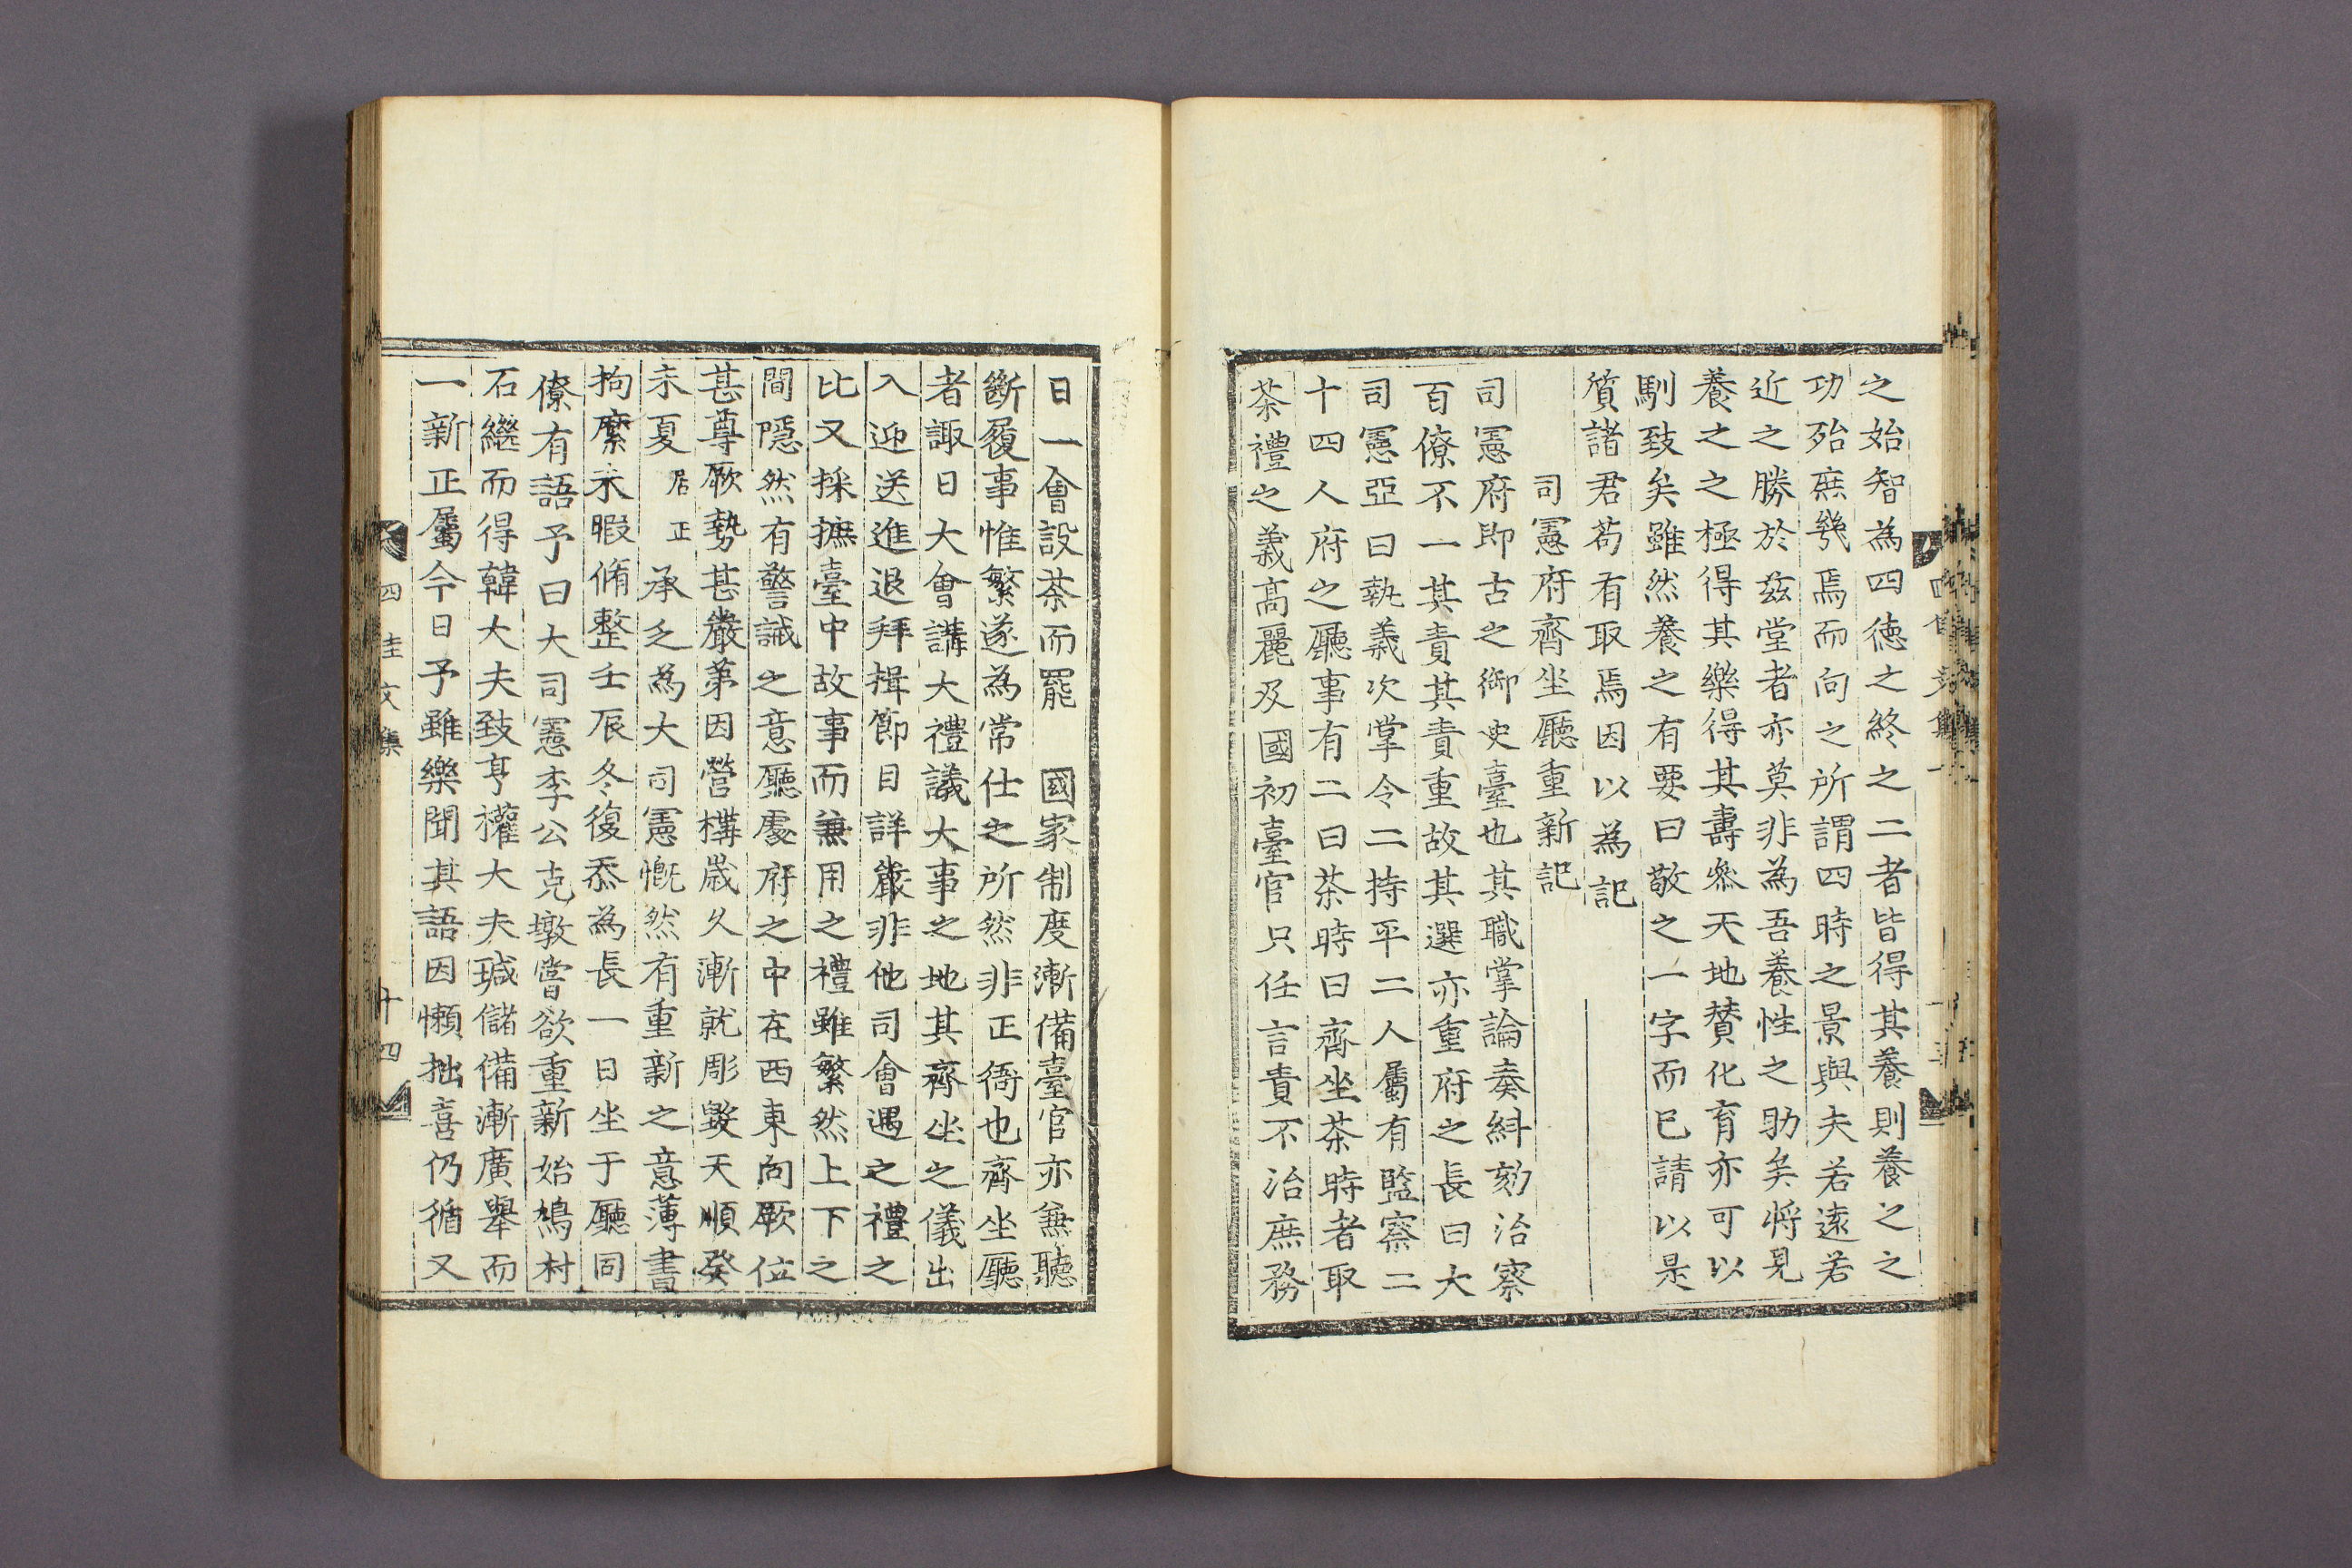 之始智為四徳之終之二者皆得其養則養之之
功殆庶幾焉而向之所謂四時之景與夫若遠若
近之勝於玆堂者亦莫非為吾養性之助矣將見
養之之極得其樂得其壽叅天地賛化育亦可以
馴致矣雖然養之有要曰敬之一字而已請以是
質諸君苟有取焉因以為記
司憲府齊坐廳重新記
司憲府即古之御史臺也其職掌論奏糾劾治察
百僚不一其責其責重故其選亦重府之長曰大
司憲亞曰執義次掌令二持平二人屬有監察二
十四人府之廳事有二曰茶時曰齊坐茶時者取
茶禮之義髙麗及國初臺官只任言責不治庶務
日一會設茶而罷 國家制度漸備臺官亦兼聽
斷履事惟繁遂為常仕之所然非正衙也齊坐廳
者諏日大會講大禮議大事之地其齊坐之儀出
入迎送進退拜揖節目詳嚴非他司會遇之禮之
比又採摭臺中故事而兼用之禮雖繁然上下之
間隠然有警誡之意廳處府之中在西東向厥位
甚尊厥勢甚嚴第因營構歲久漸就彫毀天順癸
未夏居正承乏為大司憲慨然有重新之意薄書
拘縻未暇脩整壬辰冬復忝為長一日坐于廳同
僚有語予曰大司憲李公克墩嘗欲重新始鳩材
石繼而得韓大夫致亨權大夫瑊儲備漸廣舉而
一新正屬今日予雖樂聞其語因懶拙喜仍循又
四佳文集
十四